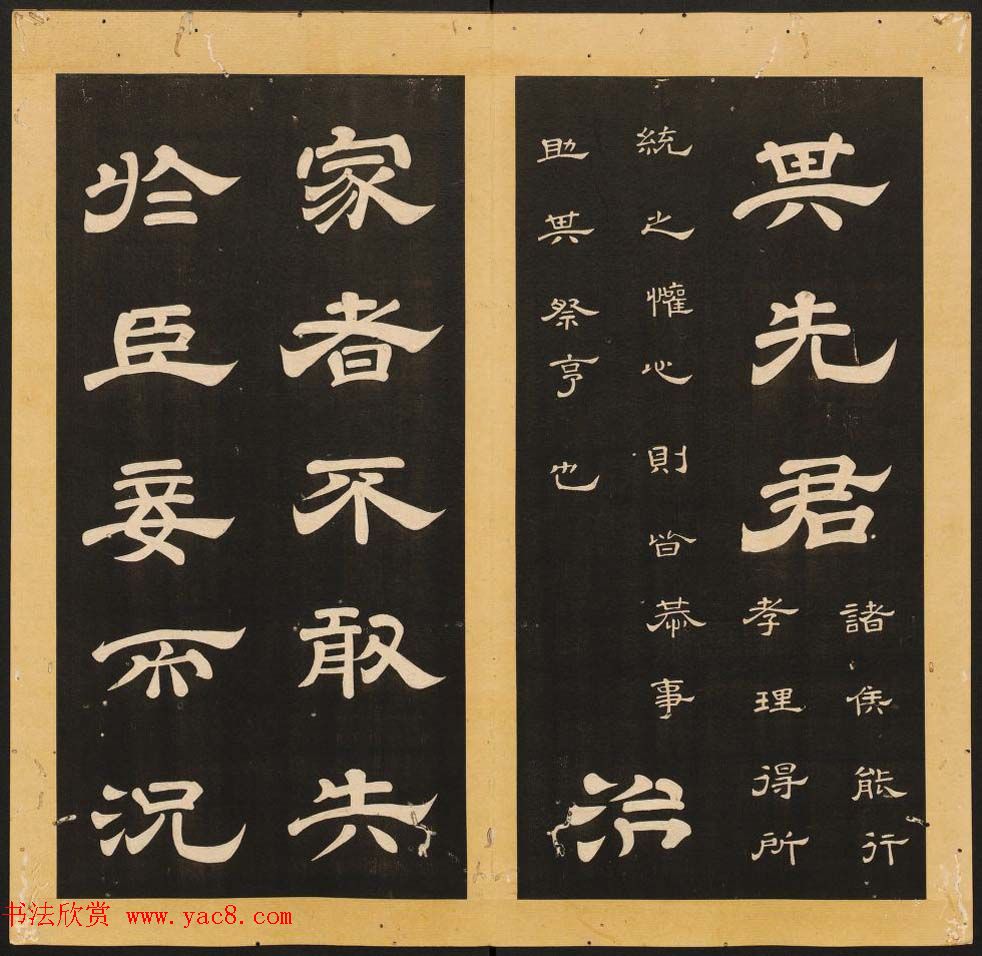 其先君
諸侯能行
孝理得所
統之懽心則皆恭事
助其祭享也
治
家者不敢失
於臣妾而況
书法欣赏 www.yac8.com